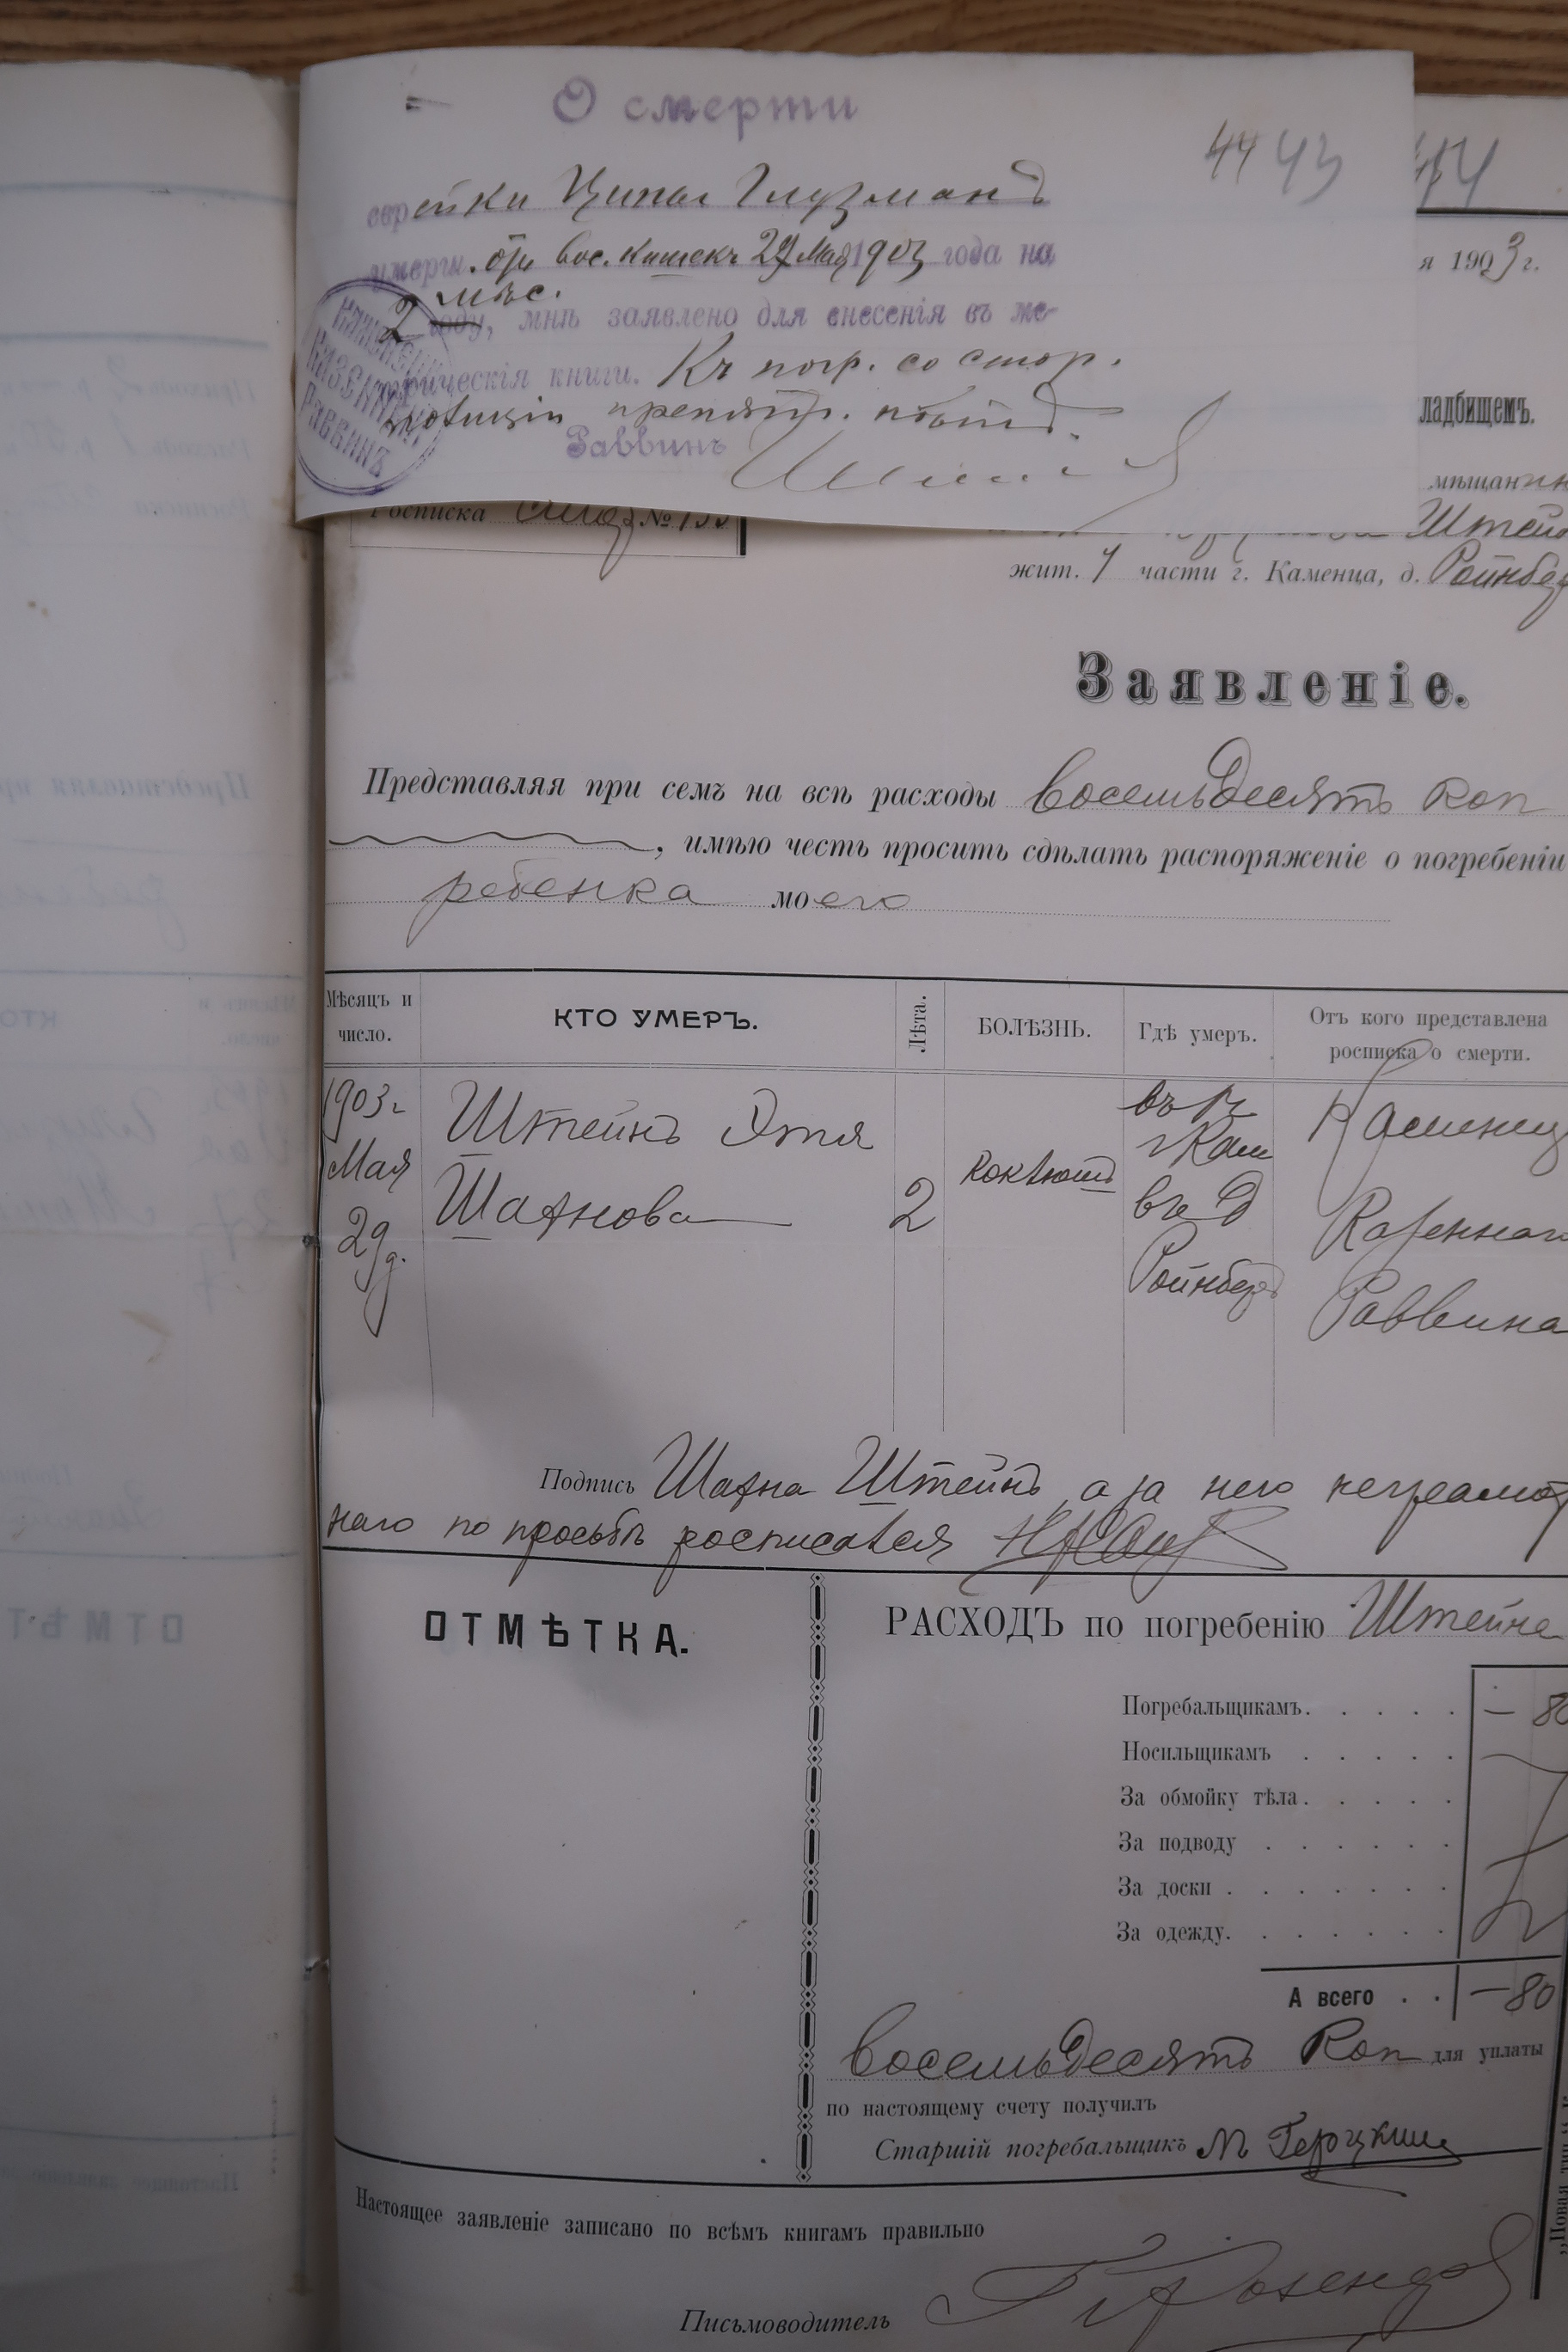 О смерти
44 43
44
еврейки Ципы Глузманъ
умерш. отъ вос. кишекъ 29 Мая 1903 года на
2 мѣс.
году, мнѣ заявлено для внесенія въ ме-
трическія книги. Къ погр. со стор.
полиціи препятст.
Раввинъ
КАЗЕННЫЙ
РАВВИНЪ
я 1903 г.
ладбищемъ.
мѣщанин
Росписка №
Штейн
жит. 1 части г. Каменца, д. Ройнбер
Заявленіе.
Представляя при семъ на всѣ расходы восемьдесятъ коп
, имѣю честь просить сдѣлать распоряженіе о погребеніи
ребенка моего
Мѣсяцъ и число.
КТО УМЕРЪ.
Лѣта.
БОЛѢЗНЬ.
Гдѣ умеръ.
Отъ кого представлена росписка о смерти.
1903 г
Мая
29 д.
Штейнъ Этя
Шахнова
2
коклюшъ
въ
г Кам
въ д
Ройнберг
Каменец
Казеннаго
Раввина
Подпись Шахна Штейнъ, а за него неграмот
наго по просьбѣ росписался
ОТМѢТКА.
РАСХОДЪ по погребенію Штейна
Погребальщикамъ. — 80
Носильщикамъ
За обмойку тѣла.
За подводу
За доски
За одежду.
А всего — 80
восемьдесятъ коп для уплаты
по настоящему счету получилъ
Старшій погребальщикъ М
Настоящее заявленіе записано по всѣмъ книгамъ правильно
Письмоводитель